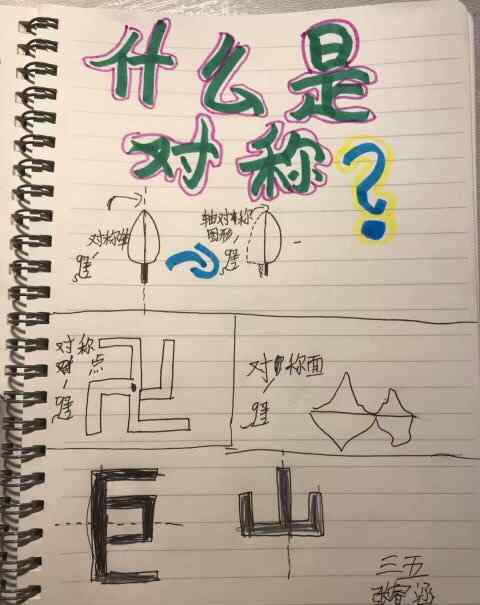 什么是
对称?
对称轴
轴对称
图形
对称
点
对称面
山
三五